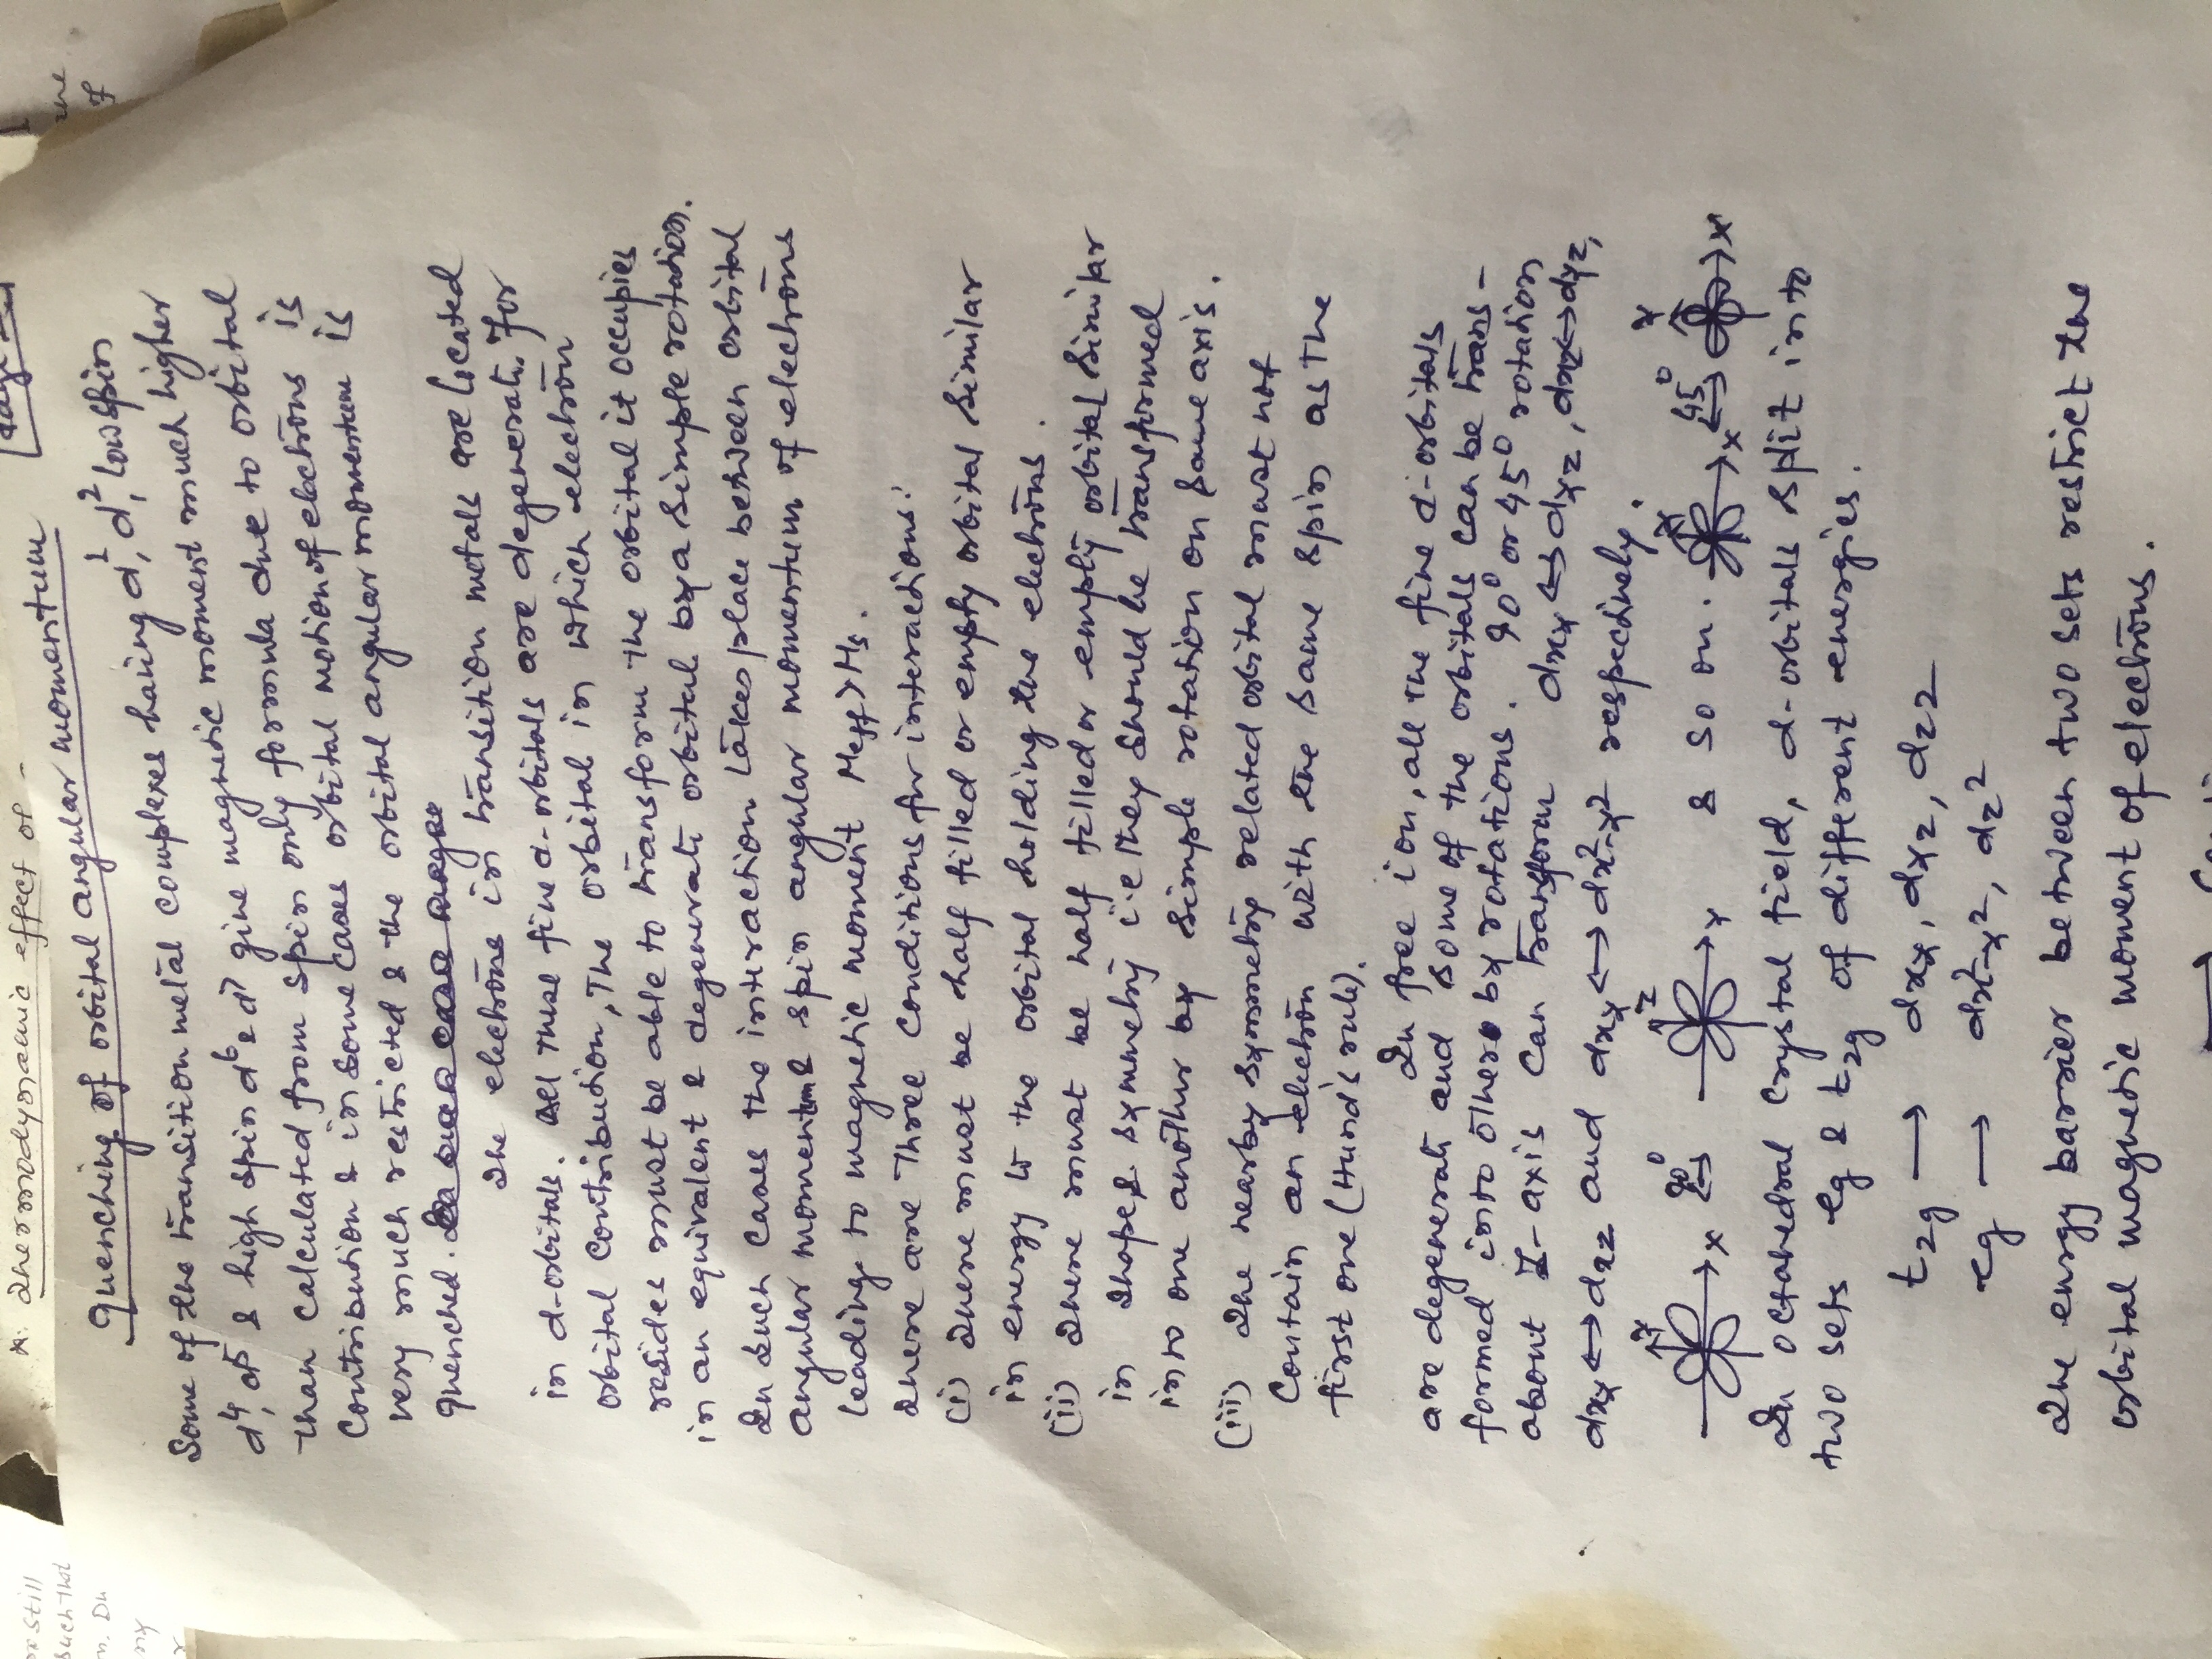 * Thermodynamic effect of -
Quenching of orbital angular momentum
Some of the transition metal complexes having d1, d2, low spin
d4, d5 & high spin d6 & d7 give magnetic moment much higher
than calculated from spin only formula due to orbital
contribution & in some cases orbital motion of electrons is
very much restricted & the orbital angular momentum is
quenched.
The electrons in transition metals are located
in d-orbitals. All these five d-orbitals are degenerate. For
orbital contribution, The orbital in which electron
resides must be able to transform the orbital it occupies
in an equivalent & degenerate orbital by a simple rotation.
In such cases the interaction takes place between orbital
angular momentum & spin angular momentum of electrons
leading to magnetic moment Meff > Ms.
There are three conditions for interactions:
(i) There must be half filled or empty orbital similar
in energy to the orbital holding the electrons.
(ii) There must be half filled or empty orbital similar
in shape & symmetry i.e they should be transformed
into one another by simple rotation on same axis.
(iii) The nearby symmetry related orbital must not
contain an electron with the same spin as the
first one (Hund's rule).
In free ion, all the five d-orbitals
are degenerate and some of the orbitals can be trans-
formed into others by rotations. 90° or 45° rotation
about Z-axis can transform dxy ↔ dxz, dxz ↔ dyz,
dxy ↔ dzz and dxy ↔ dx2-y2 respectively.
y x 90° z x & so on. y x 45° y x
In octahedral crystal field, d-orbitals split into
two sets eg & t2g of different energies.
t2g → dxy, dxz, dz2
eg → dx2-y2, dz2
The energy barrier between two sets restrict the
orbital magnetic moment of electrons.
or still
such that
n. In
ny